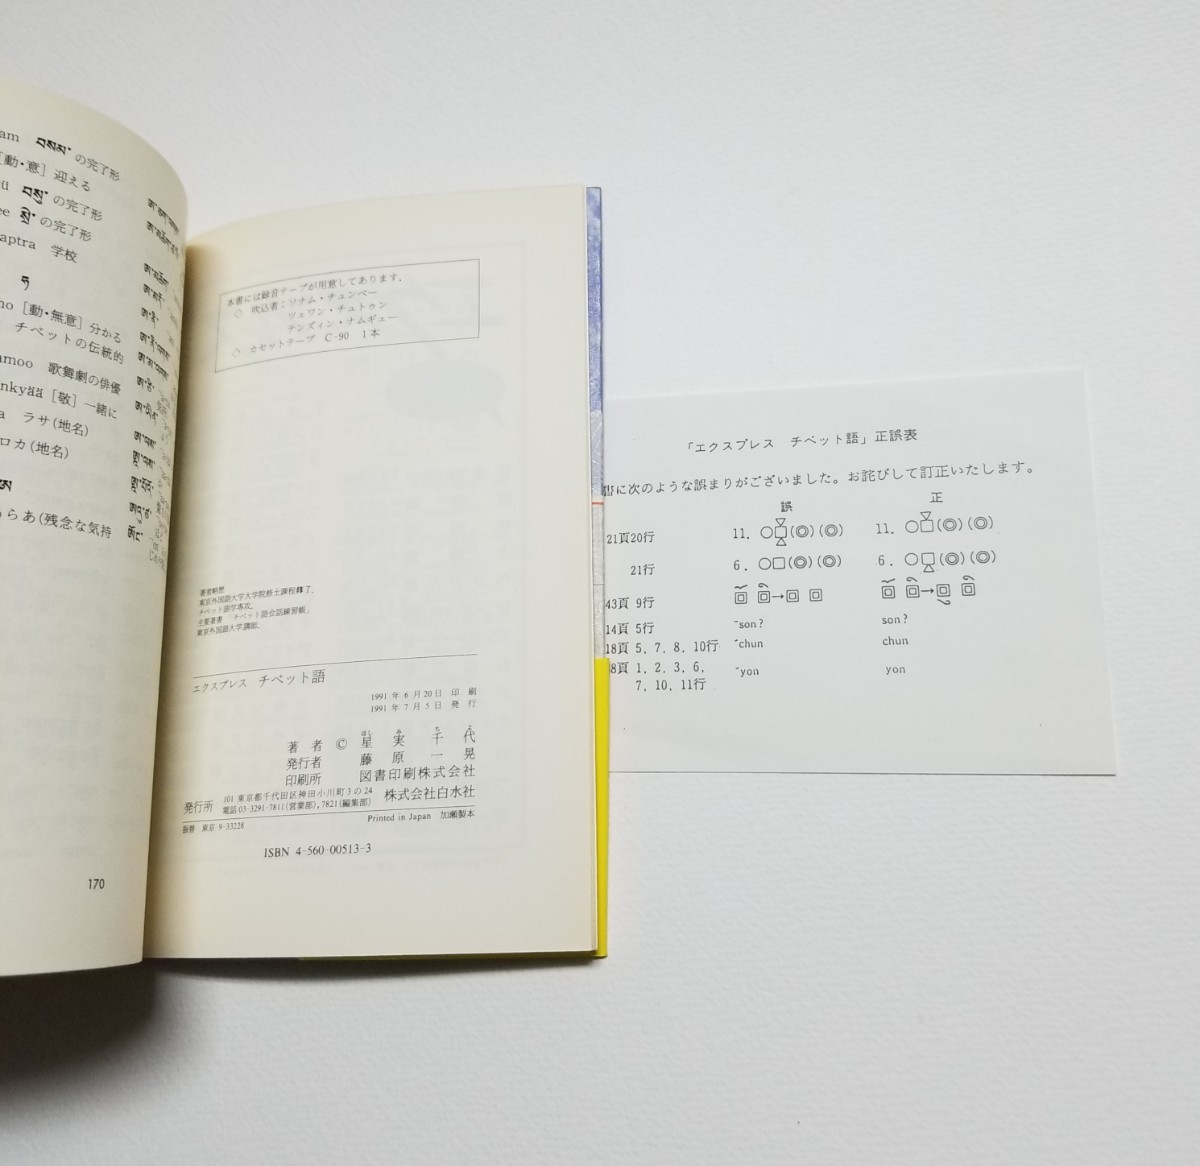 am བསམ་ の完了形
[動・意] 迎える
の完了形
ee の完了形
aptra 学校
ཧ
no [動・無意] 分かる
チベットの伝統的
amoo 歌舞劇の俳優
nkyää [敬] 一緒に
a ラサ(地名)
ロカ(地名)
らあ(残念な気持
170
本書には録音テープが用意してあります.
◇ 吹込者：ソナム・チュンペー
ツェワン・チュトゥン
テンズィン・ナムギェー
◇ カセットテープ C-90 1本
著者略歴
東京外国語大学大学院修士課程修了.
チベット語学専攻.
主要著書 「チベット語会話練習帳」
東京外国語大学講師.
エクスプレス チベット語
1991年6月20日 印刷
1991年7月5日 発行
著者 © 星 実千代
ほし み ち よ
発行者 藤原一晃
印刷所 図書印刷株式会社
発行所 101東京都千代田区神田小川町3の24 株式会社白水社
電話03-3291-7811(営業部), 7821(編集部)
振替 東京 9-33228 Printed in Japan 加瀬製本
ISBN 4-560-00513-3
「エクスプレス チベット語」正誤表
書に次のような誤まりがございました。お詫びして訂正いたします。
誤 正
21頁20行 11. ○□(◎)(◎) 11. ○□(◎)(◎)
21行 6. ○□(◎)(◎) 6. ○□(◎)(◎)
43頁 9行 回 回→回 回 回 回→回 回
14頁 5行 ˉson? son?
18頁 5, 7, 8, 10行 ˉchun chun
8頁 1, 2, 3, 6, ˉyon yon
7, 10, 11行